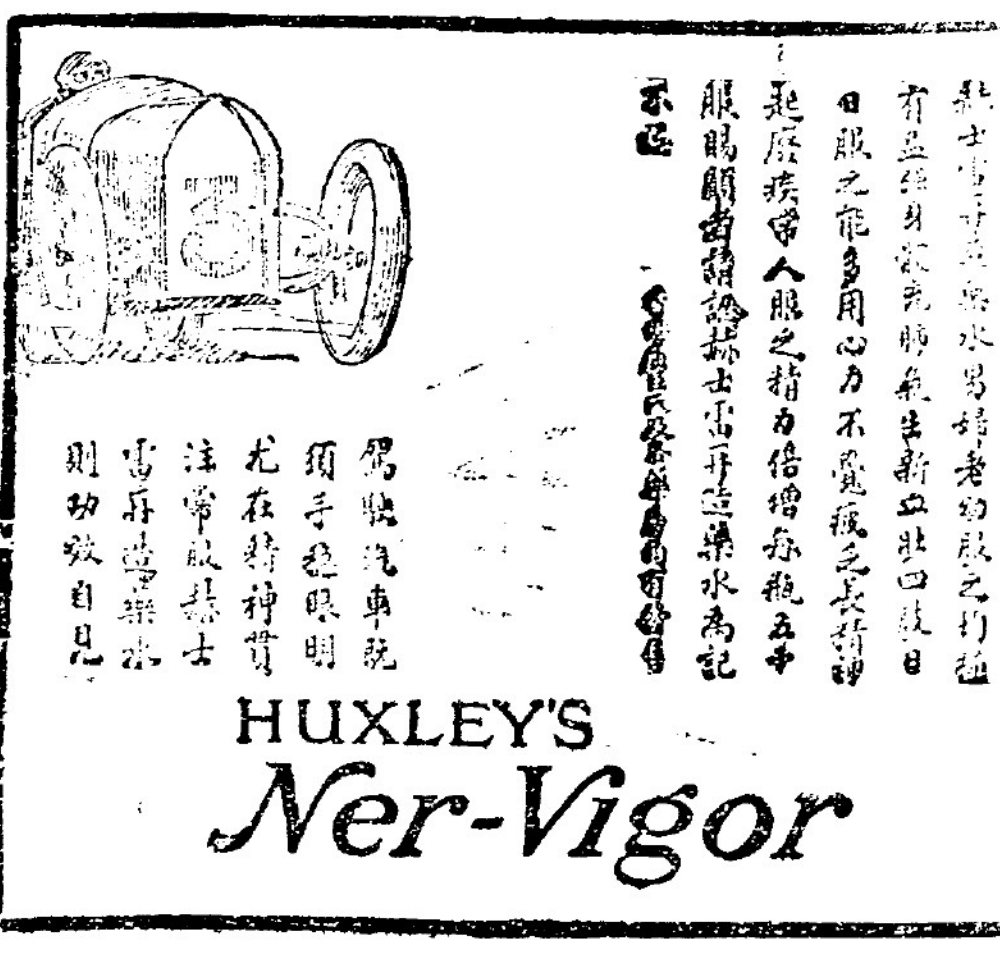 赫士雷藥水男婦老幼服之均極
有益強身充肺氣生新血壯四肢日
日服之能多用心力不覺疲乏長精神
起廢疾常人服之精力倍增每瓶五中
服賜顧者請認赫士雷造藥水為記
臣氏及各藥房均有發售
駕駛汽車既
須手眼明
尤在精神貫
注常服赫士
雷造藥水
則功效自見
HUXLEY'S
Ner-Vigor